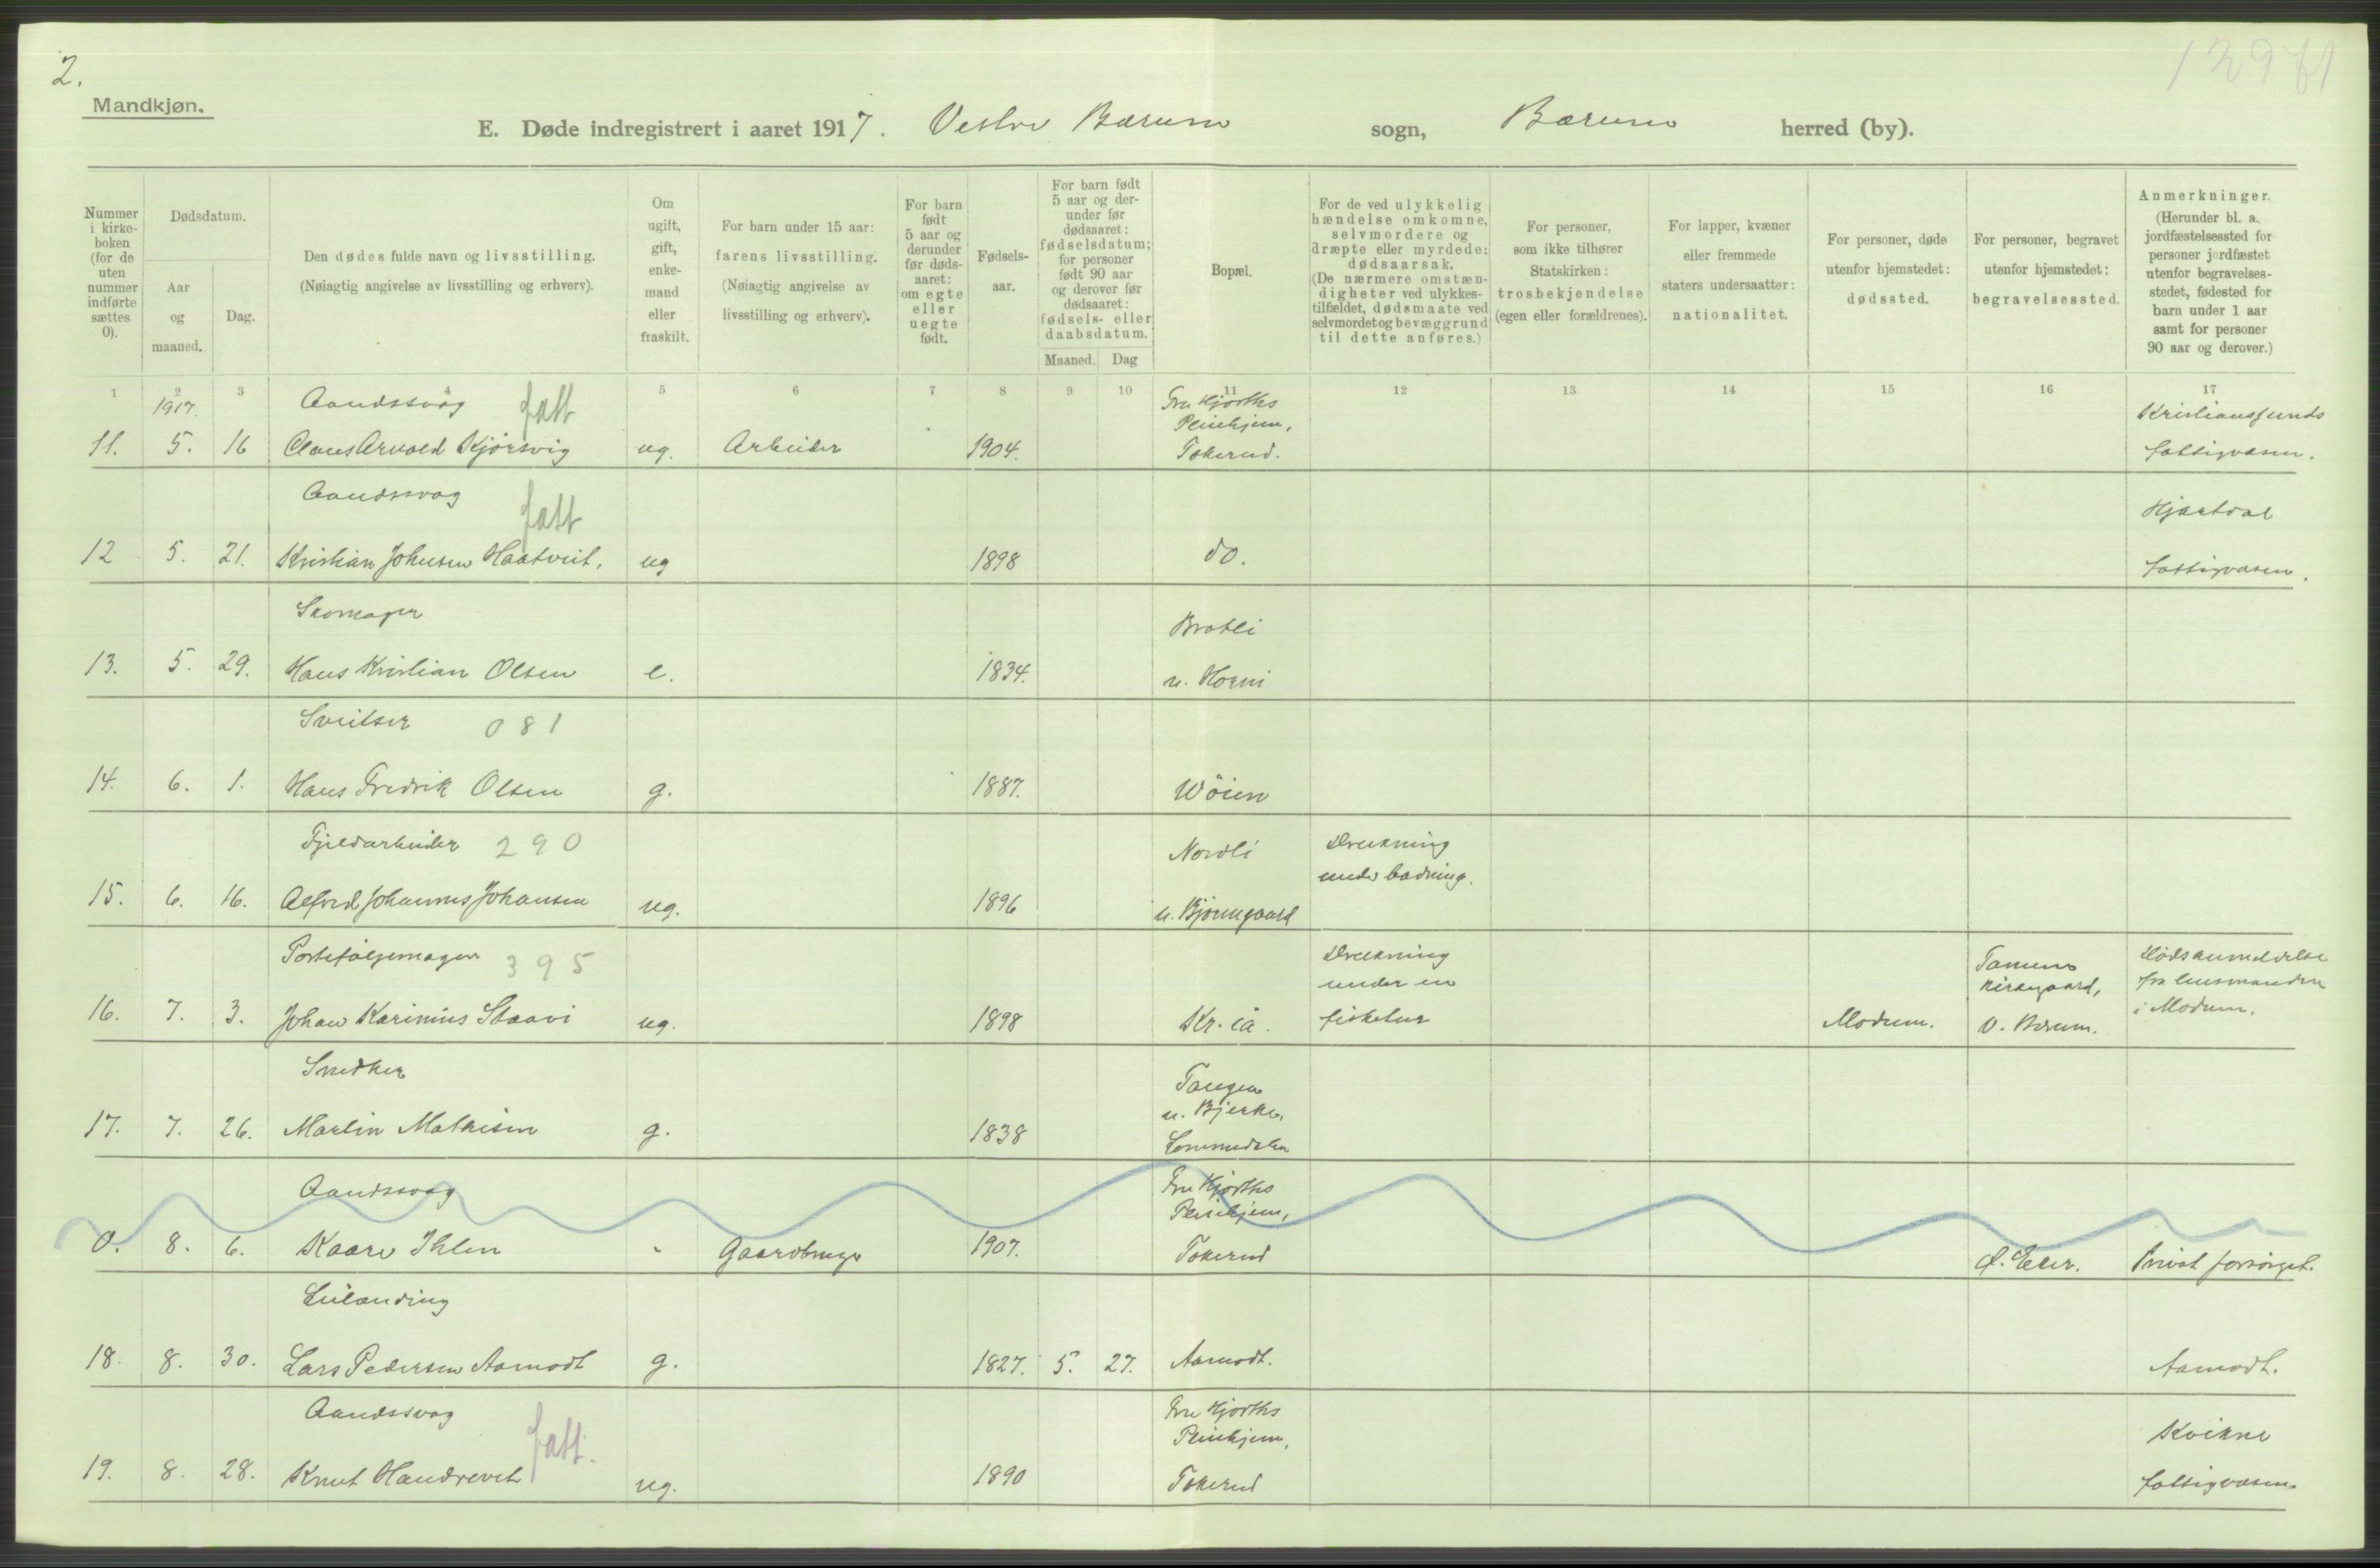 2.
12971
Mandkjøn.
E. Døde indregistrert i aaret 1917. Vestre Bærum sogn, Bærum herred (by).
Nummer i kirke-boken (for de uten nummer indførte sættes 0).
Dødsdatum.
Aar og maaned.
Dag.
Den dødes fulde navn og livsstilling.
(Nøiagtig angivelse av livsstilling og erhverv).
Om ugift, gift, enke-mand eller fraskilt.
For barn under 15 aar: farens livsstilling.
(Nøiagtig angivelse av livsstilling og erhverv).
For barn født 5 aar og derunder før døds-aaret: om egte eller uegte født.
Fødsels-aar.
For barn født 5 aar og der-under før dødsaaret: fødselsdatum; for personer født 90 aar og derover før dødsaaret: fødsels- eller daabsdatum.
Maaned.
Dag
Bopæl.
For de ved ulykkelig hændelse omkomne, selvmordere og dræpte eller myrdede: dødsaarsak.
(De nærmere omstæn-digheter ved ulykkes-tilfældet, dødsmaate ved selvmordet og bevæggrund til dette anføres.)
For personer, som ikke tilhører Statskirken: trosbekjendelse (egen eller forældrenes).
For lapper, kvæner eller fremmede staters undersaatter: nationalitet.
For personer, døde utenfor hjemstedet: dødssted.
For personer, begravet utenfor hjemstedet: begravelsessted.
Anmerkninger.
(Herunder bl. a. jordfæstelsessted for personer jordfæstet utenfor begravelses-stedet, fødested for barn under 1 aar samt for personer 90 aar og derover.)
1 2 3 4 5 6 7 8 9 10 11 12 13 14 15 16 17
1917. Aandssvag fatt Fru Hjorths Kristianssunds
Pleiehjem,
11. 5. 16 Claus Arnold Kjørsvig ug. Arbeider 1904. Tokerud. fattigvæsen.
Aandssvag fatt Hjartdal
12 5. 21. Kristian Johnsen Haatveit. ug 1898 do. fattigvæsen.
Skomager Bratli
13. 5. 29. Hans Kristian Olsen e. 1834. u. Horni
Sveitser 081
14. 6. 1. Hans Fredrik Olsen g. 1887. Wøien
Fjeldarbeider 290 Nordli Drukning
under badning.
15. 6. 16. Alfred Johannes Johansen ug. 1896 u. Bjerregaard
Portefølgemager 395 Drukning Tanums Dødsanmeldelse
under en kirkegaard, fra lensmanden
16. 7. 3. Johan Karinius Staavi ug. 1898 Kr.ia. fisketur Modum. V. Bærum. i Modum.
Snedker Tangen
u. Bjerke,
17. 7. 26. Martin Mathisen g. 1838 Lommedalen
Aandssvag Fru Hjorths
Pleiehjem,
0. 8. 6. Kaare Ihlen " Gaardbruger 1907. Tokerud Ø. Eker. Privat forsørget.
Leilænding
18. 8. 30. Lars Pedersen Aamodt g. 1827. 5. 27. Aamodt. Aamodt.
Aandssvag fatt. Fru Hjorths Kvikne
Pleiehjem,
19. 8. 28. Knut Handrevet ug. 1890 Tokerud fattigvæsen.